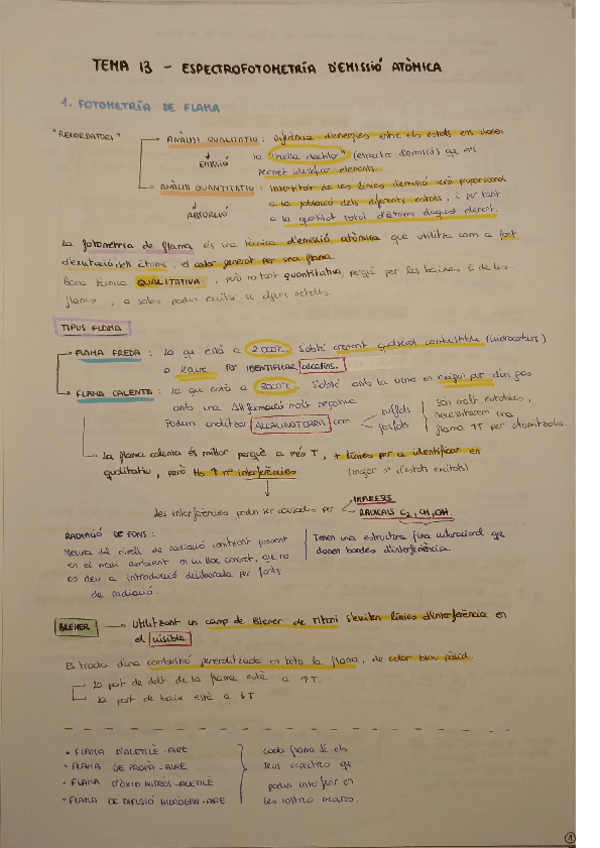 TEMA 13 - ESPECTROFOTOMETRÍA D'EMISSIÓ ATÒMICA
1. FOTOMETRÍA DE FLAMA
"RECORDATORI"
ANÀLISI QUALITATIU : Diferència d'energies entre els estats ens donen
EMISSIÓ
la "huella dactilar" (espectre d'emissió) que ens
permet identificar elements.
ANÀLISI QUANTITATIU : Intensitat de les línies d'emissió serà proporcional
ABSORCIÓ
a la població dels diferents estats, i per tant
a la quantitat total d'àtoms d'aquest element.
La fotometria de flama és una tècnica d'emissió atòmica que utilitza com a font
d'excitació dels àtoms, el calor generat per una flama.
Bona tècnica QUALITATIVA, però no tant quantitativa, perquè per les baixes T de les
flames, a soles poden excitar-se alguns metalls.
TIPUS FLAMA
FLAMA FREDA : La que està a 2000ºC. S'obté cremant qualsevol combustible (hidrocarburs)
a l'aire. Per IDENTIFICAR alcalins.
FLAMA CALENTA : la que està a 3000ºC. S'obté amb la crema en oxigen pur d'un gas
amb una ΔH formació molt negativa.
Podem analitzar ALCALINOTERRIS com
sulfats
fosfats
Són molt estables,
necessitarem una
flama ↑T per atomitzar-los.
La flama calenta és millor perquè a més T, + línies per a identificar en
qualitatiu, però tb ↑ nº interferències
(major nº d'estats excitats)
Les interferències poden ser causades per
IMPURESES
RADICALS C2, CH, OH.
RADIACIÓ DE FONS :
Mesura del nivell de radiació constant present
en el medi ambient en un lloc concret, que no
es deu a introducció deliberada per fonts
de radiació.
Tenen una estructura fina vibracional que
donen bandes d'interferència
BLENER
Utilitzant un camp de Blener de titani s'eviten línies d'interferència en
el visible
Es tracta d'una combustió generalitzada en tota la flama, de color blau pàlid.
la part de dalt de la flama està a ↑T.
la part de baix està a ↓T
• FLAMA D'ACETILÈ - AIRE
• FLAMA DE PROPÀ - AIRE
• FLAMA D'ÒXID NITRÓS - ACETILÈ
• FLAMA DE DIFUSIÓ HIDROGEN - AIRE
cada flama té els
seus espectres que
poden interferir en
les nostres mesures.
1